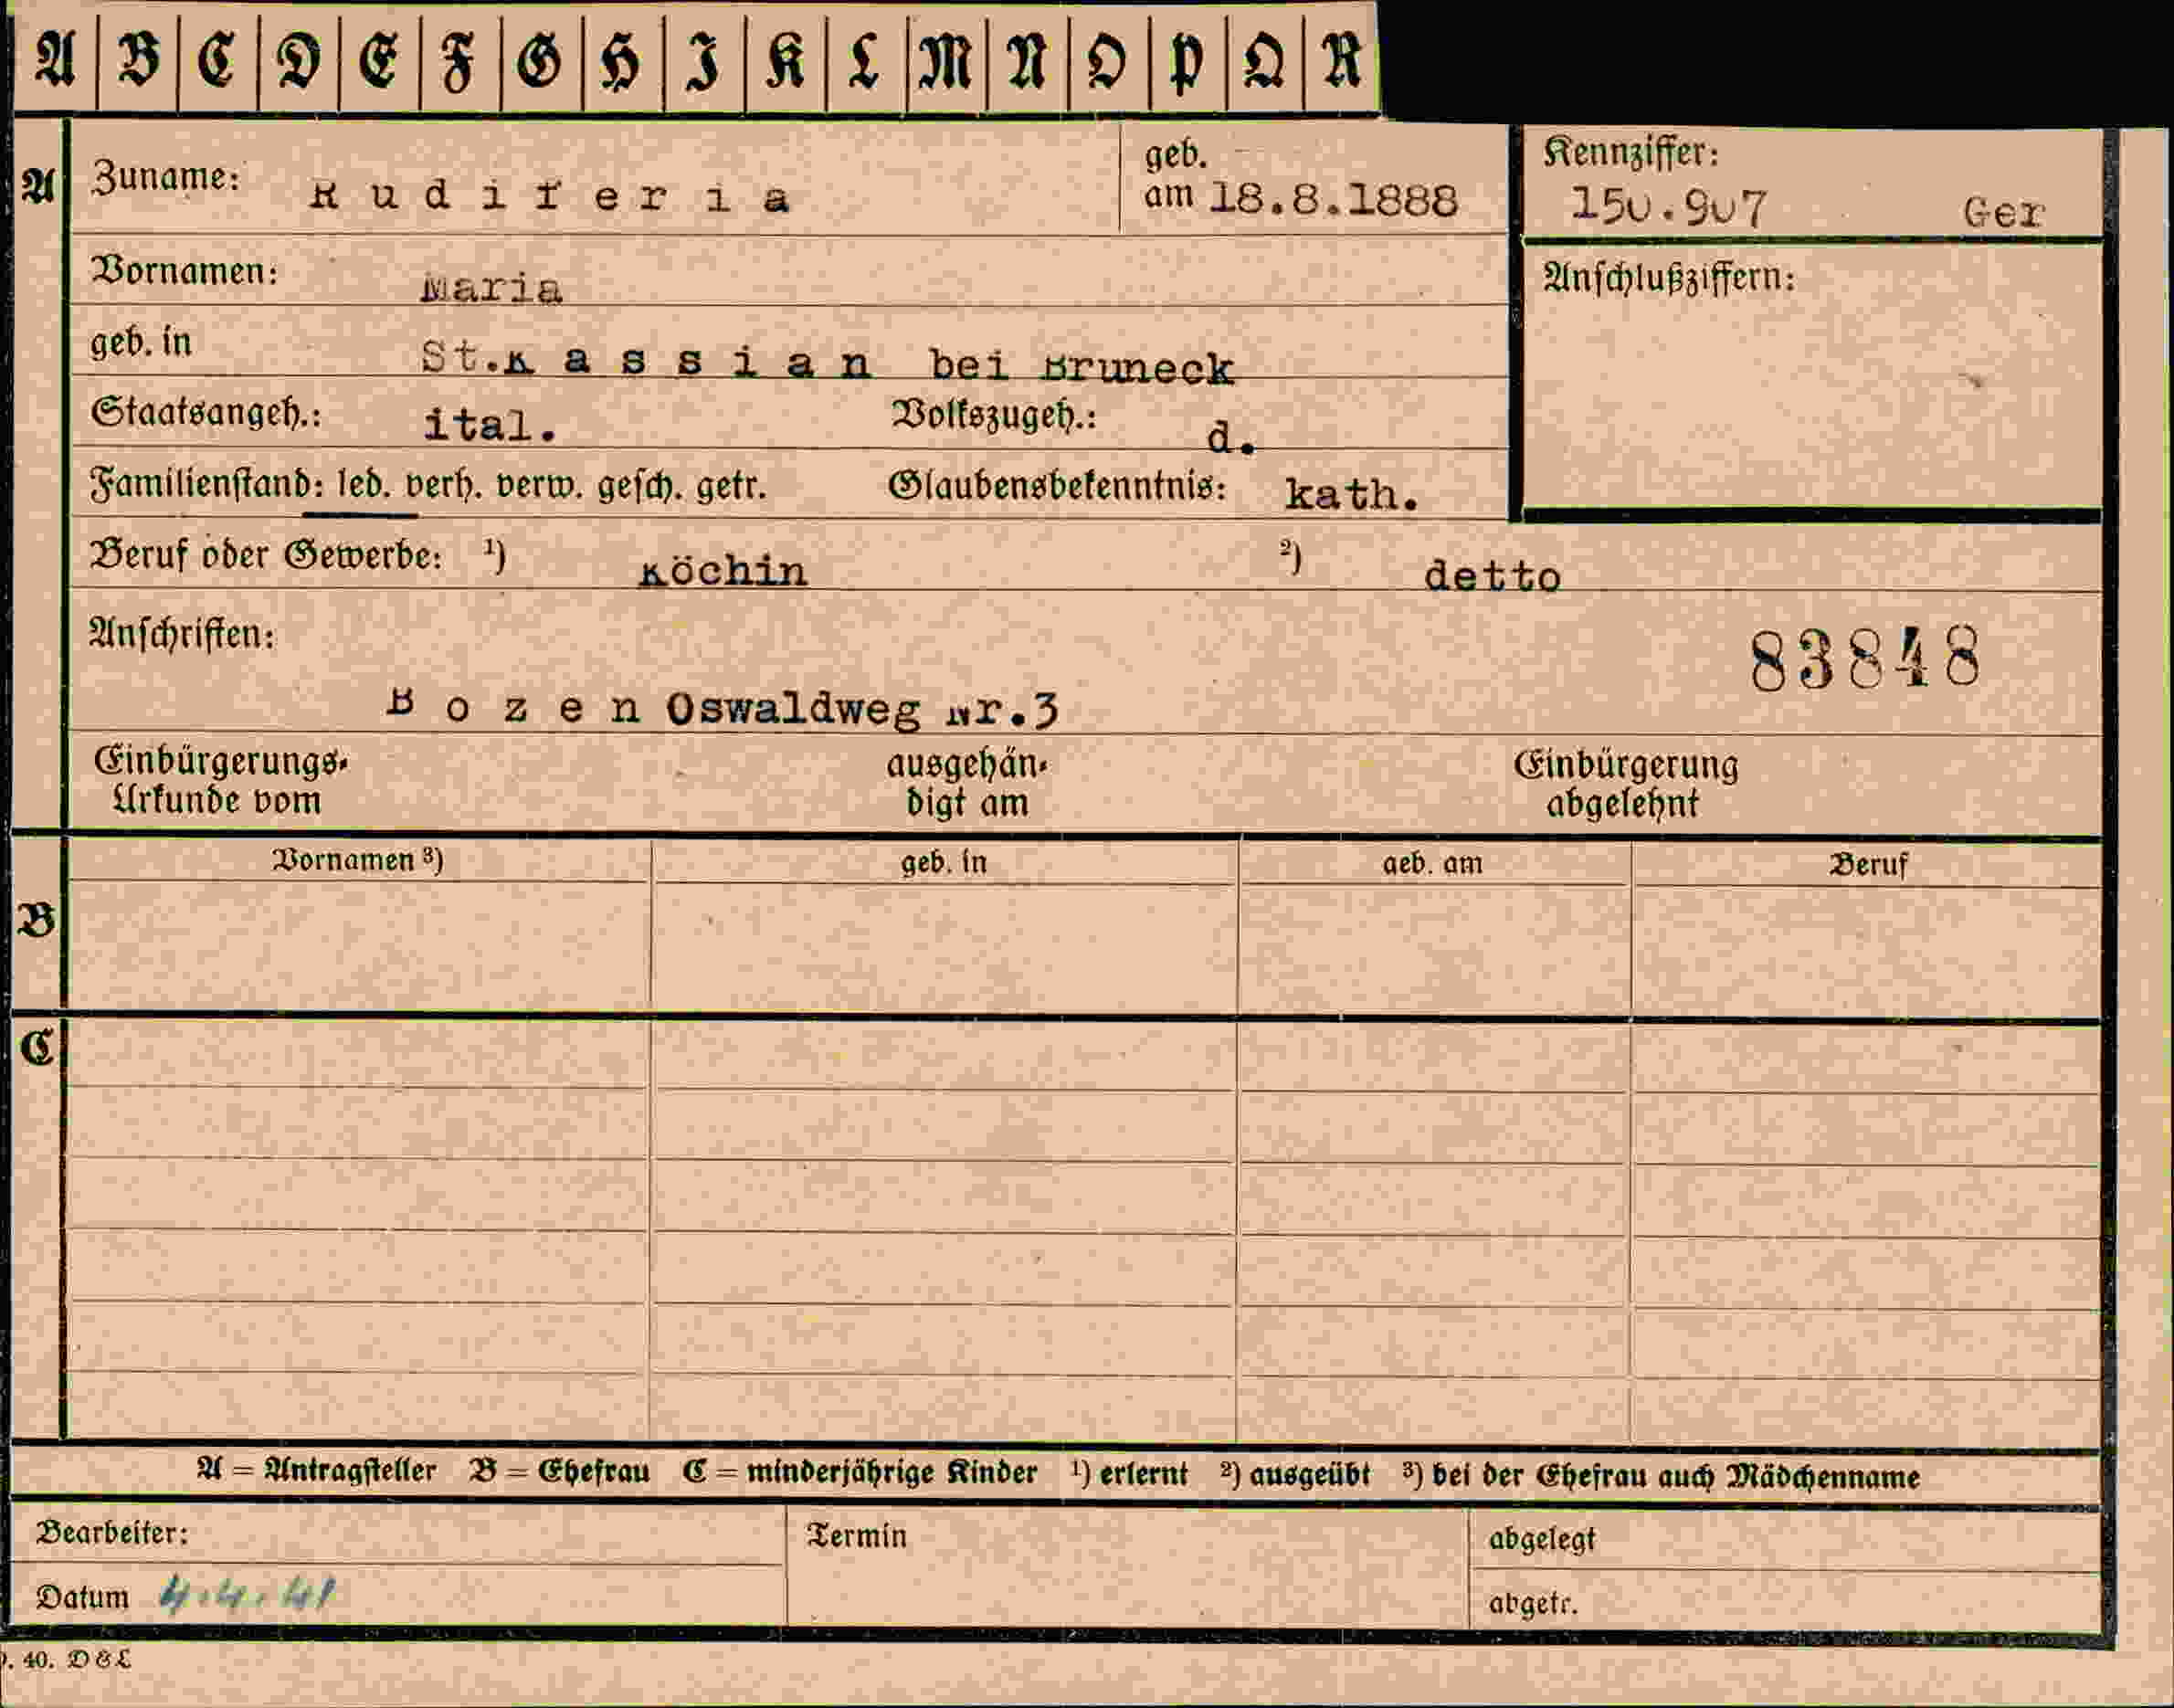 A B C D E F G H I K L M N O P Q R
A Zuname: Rudiferia geb. am 18.8.1888 Kennziffer: 150.907 Ger
Vornamen: Maria Anschlußziffern:
geb. in St.Kassian bei Bruneck
Staatsangeh.: ital. Volkszugeh.: d.
Familienstand: led. verh. verw. gesch. getr. Glaubensbekenntnis: kath.
Beruf oder Gewerbe: ¹) Köchin ²) detto
Anschriften: 83848
Bozen Oswaldweg Nr.3
Einbürgerungs- ausgehän- Einbürgerung
Urkunde vom digt am abgelehnt
Vornamen ³) geb. in geb. am Beruf
B
C
A = Antragsteller B = Ehefrau C = minderjährige Kinder ¹) erlernt ²) ausgeübt ³) bei der Ehefrau auch Mädchenname
Bearbeiter: Termin abgelegt
Datum 4.4.41 abgetr.
40. D & L